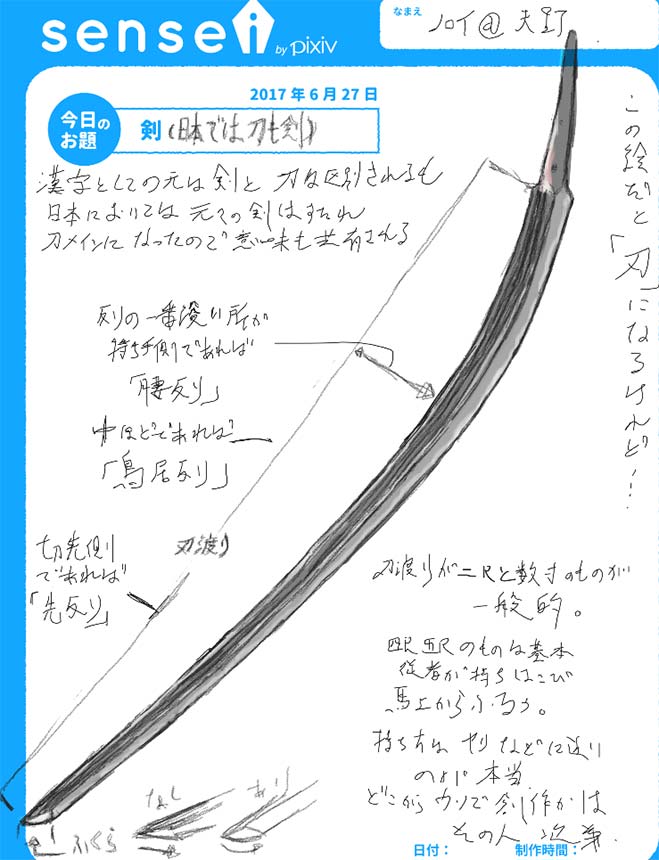 sensei
by pixiv
なまえ
ノロイ@天野
2017年6月27日
今日の
お題
剣(日本では刀も剣)
漢字としての元は剣と刀は区別されるも
日本においては元々の剣はすたれ
刀メインになったので意味も共有される
この絵だと「刃」になるけれど…
反りの一番深い所が
持ち手側であれば
「腰反り」
中ほどであれば
「鳥居反り」
切先側
であれば
「先反り」
刃渡り
刃渡りが二尺と数寸のものが
一般的。
四尺五尺のものは基本
従者が持ちはこび
馬上からふるう。
持ち方は やりなどに近い
のが 本当
どこからウソで創作かは
その人次第
ふくら
なし
あり
日付:
制作時間: